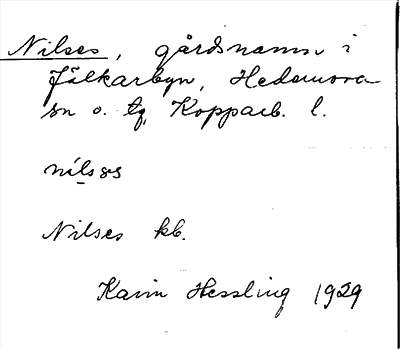 Nilses, gårdsnamn i
Jälkarbyn, Hedemora
sn o. tg, Kopparb. l.
nílsəs
Nilses kb.
Karin Hessling 1929